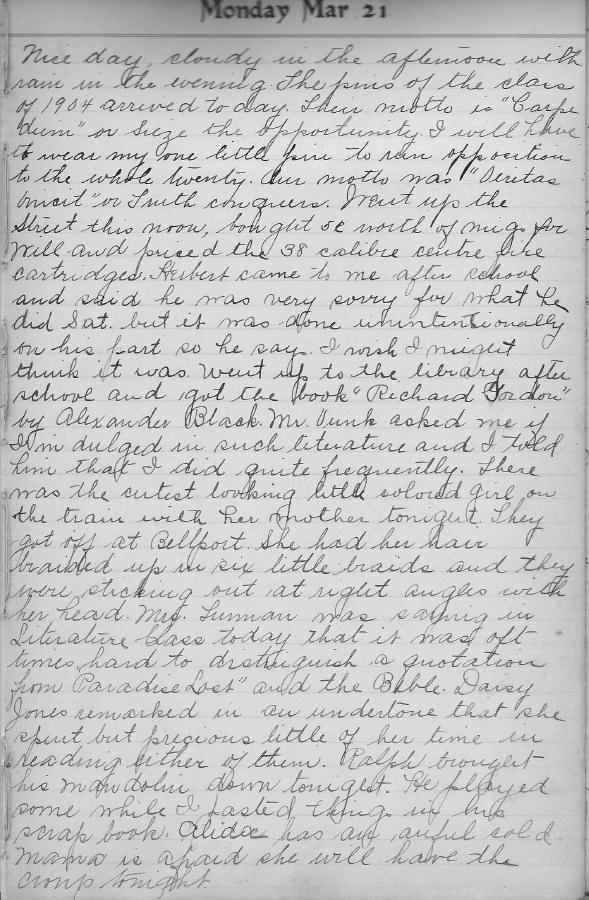 Monday Mar 21
Nice day, cloudy in the afternoon with
rain in the evening. The pins of the class
of 1904 arrived to day. Their motto is "Carpe
dium" or Sieze the opportunity. I will have
to wear my one little pin to run opposition
to the whole twenty. Our motto was "Veritas
Vincit" or Truth conquers. Went up the
Street this noon, bought 5c worth of nigs for
Will and priced the 38 calibre centre fire
cartridges. Herbert came to me after school
and said he was very sorry for what he
did Sat. but it was done unintentionally
on his part so he says. I wish I might
think it was. Went up to the library after
school and got the book "Richard Gordon"
by Alexander Black. Mr. Funk asked me if
I indulged in such literature and I told
him that I did quite frequently. There
was the cutest looking little colored girl on
the train with her mother tonight. They
got off at Bellport. She had her hair
braided up in six little braids and they
were sticking out at right angles with
her head. Mrs. Surman was saying in
Literature Class today that it was oft
times hard to distinguish a quotation
from Paradise Lost" and the Bible. Daisy
Jones remarked in an undertone that she
spent but precious little of her time in
reading either of them. Ralph brought
his mandolin down tonight. He played
some while I pasted things in his
scrap book. Alida has an awful cold.
Mama is afraid she will have the
croup tonight.